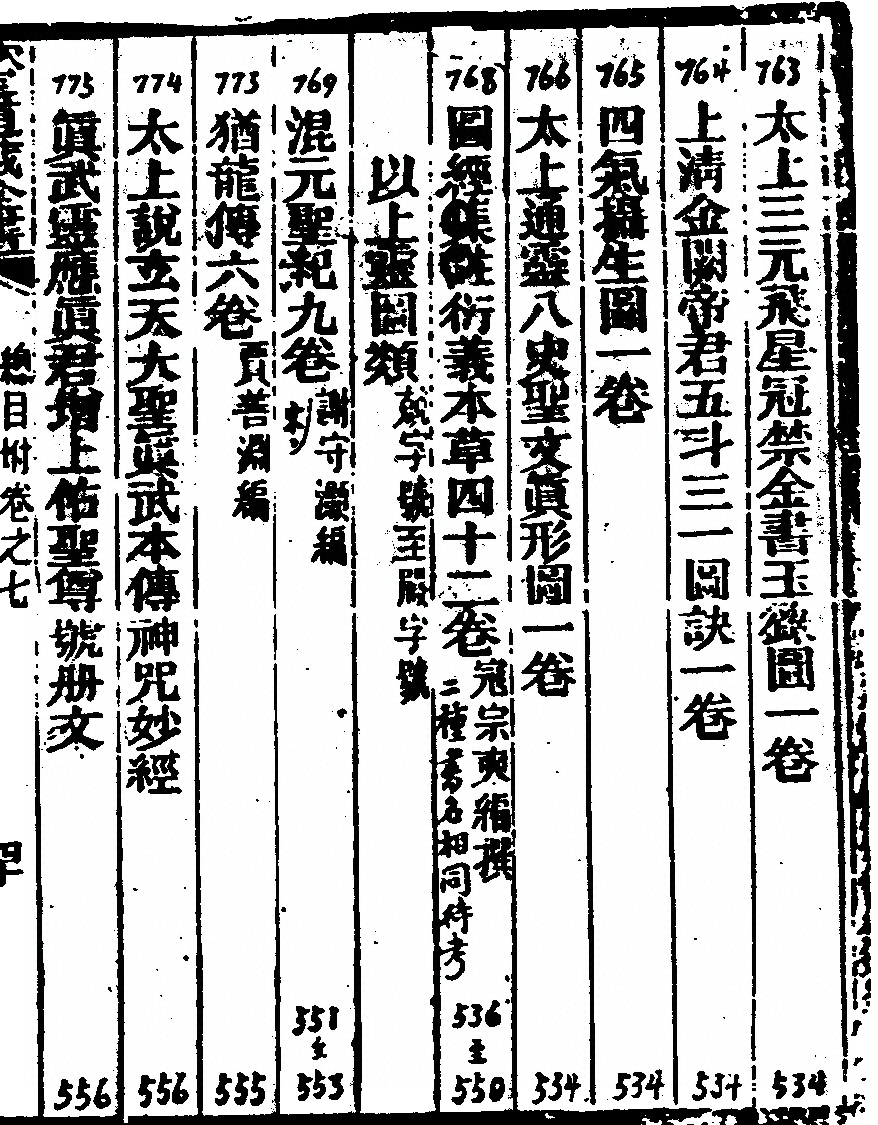 763 太上三元飛星冠禁金書玉籙圖一卷 534
764 上淸金闕帝君五斗三一圖訣一卷 534
765 四氣攝生圖一卷 534
766 太上通靈八史聖文眞形圖一卷 534
768 圖經集注衍義本草四十二卷 冦宗奭編撰 二種書名相同待考 536至550
以上靈圖類 兢字號至嚴字號
769 混元聖紀九卷 謝守灝編 551至553
773 猶龍傳六卷 賈善淵編 555
774 太上說玄天大聖眞武本傳神咒妙經 556
775 眞武靈應眞君增上佑聖尊號册文 556
總目附卷之七